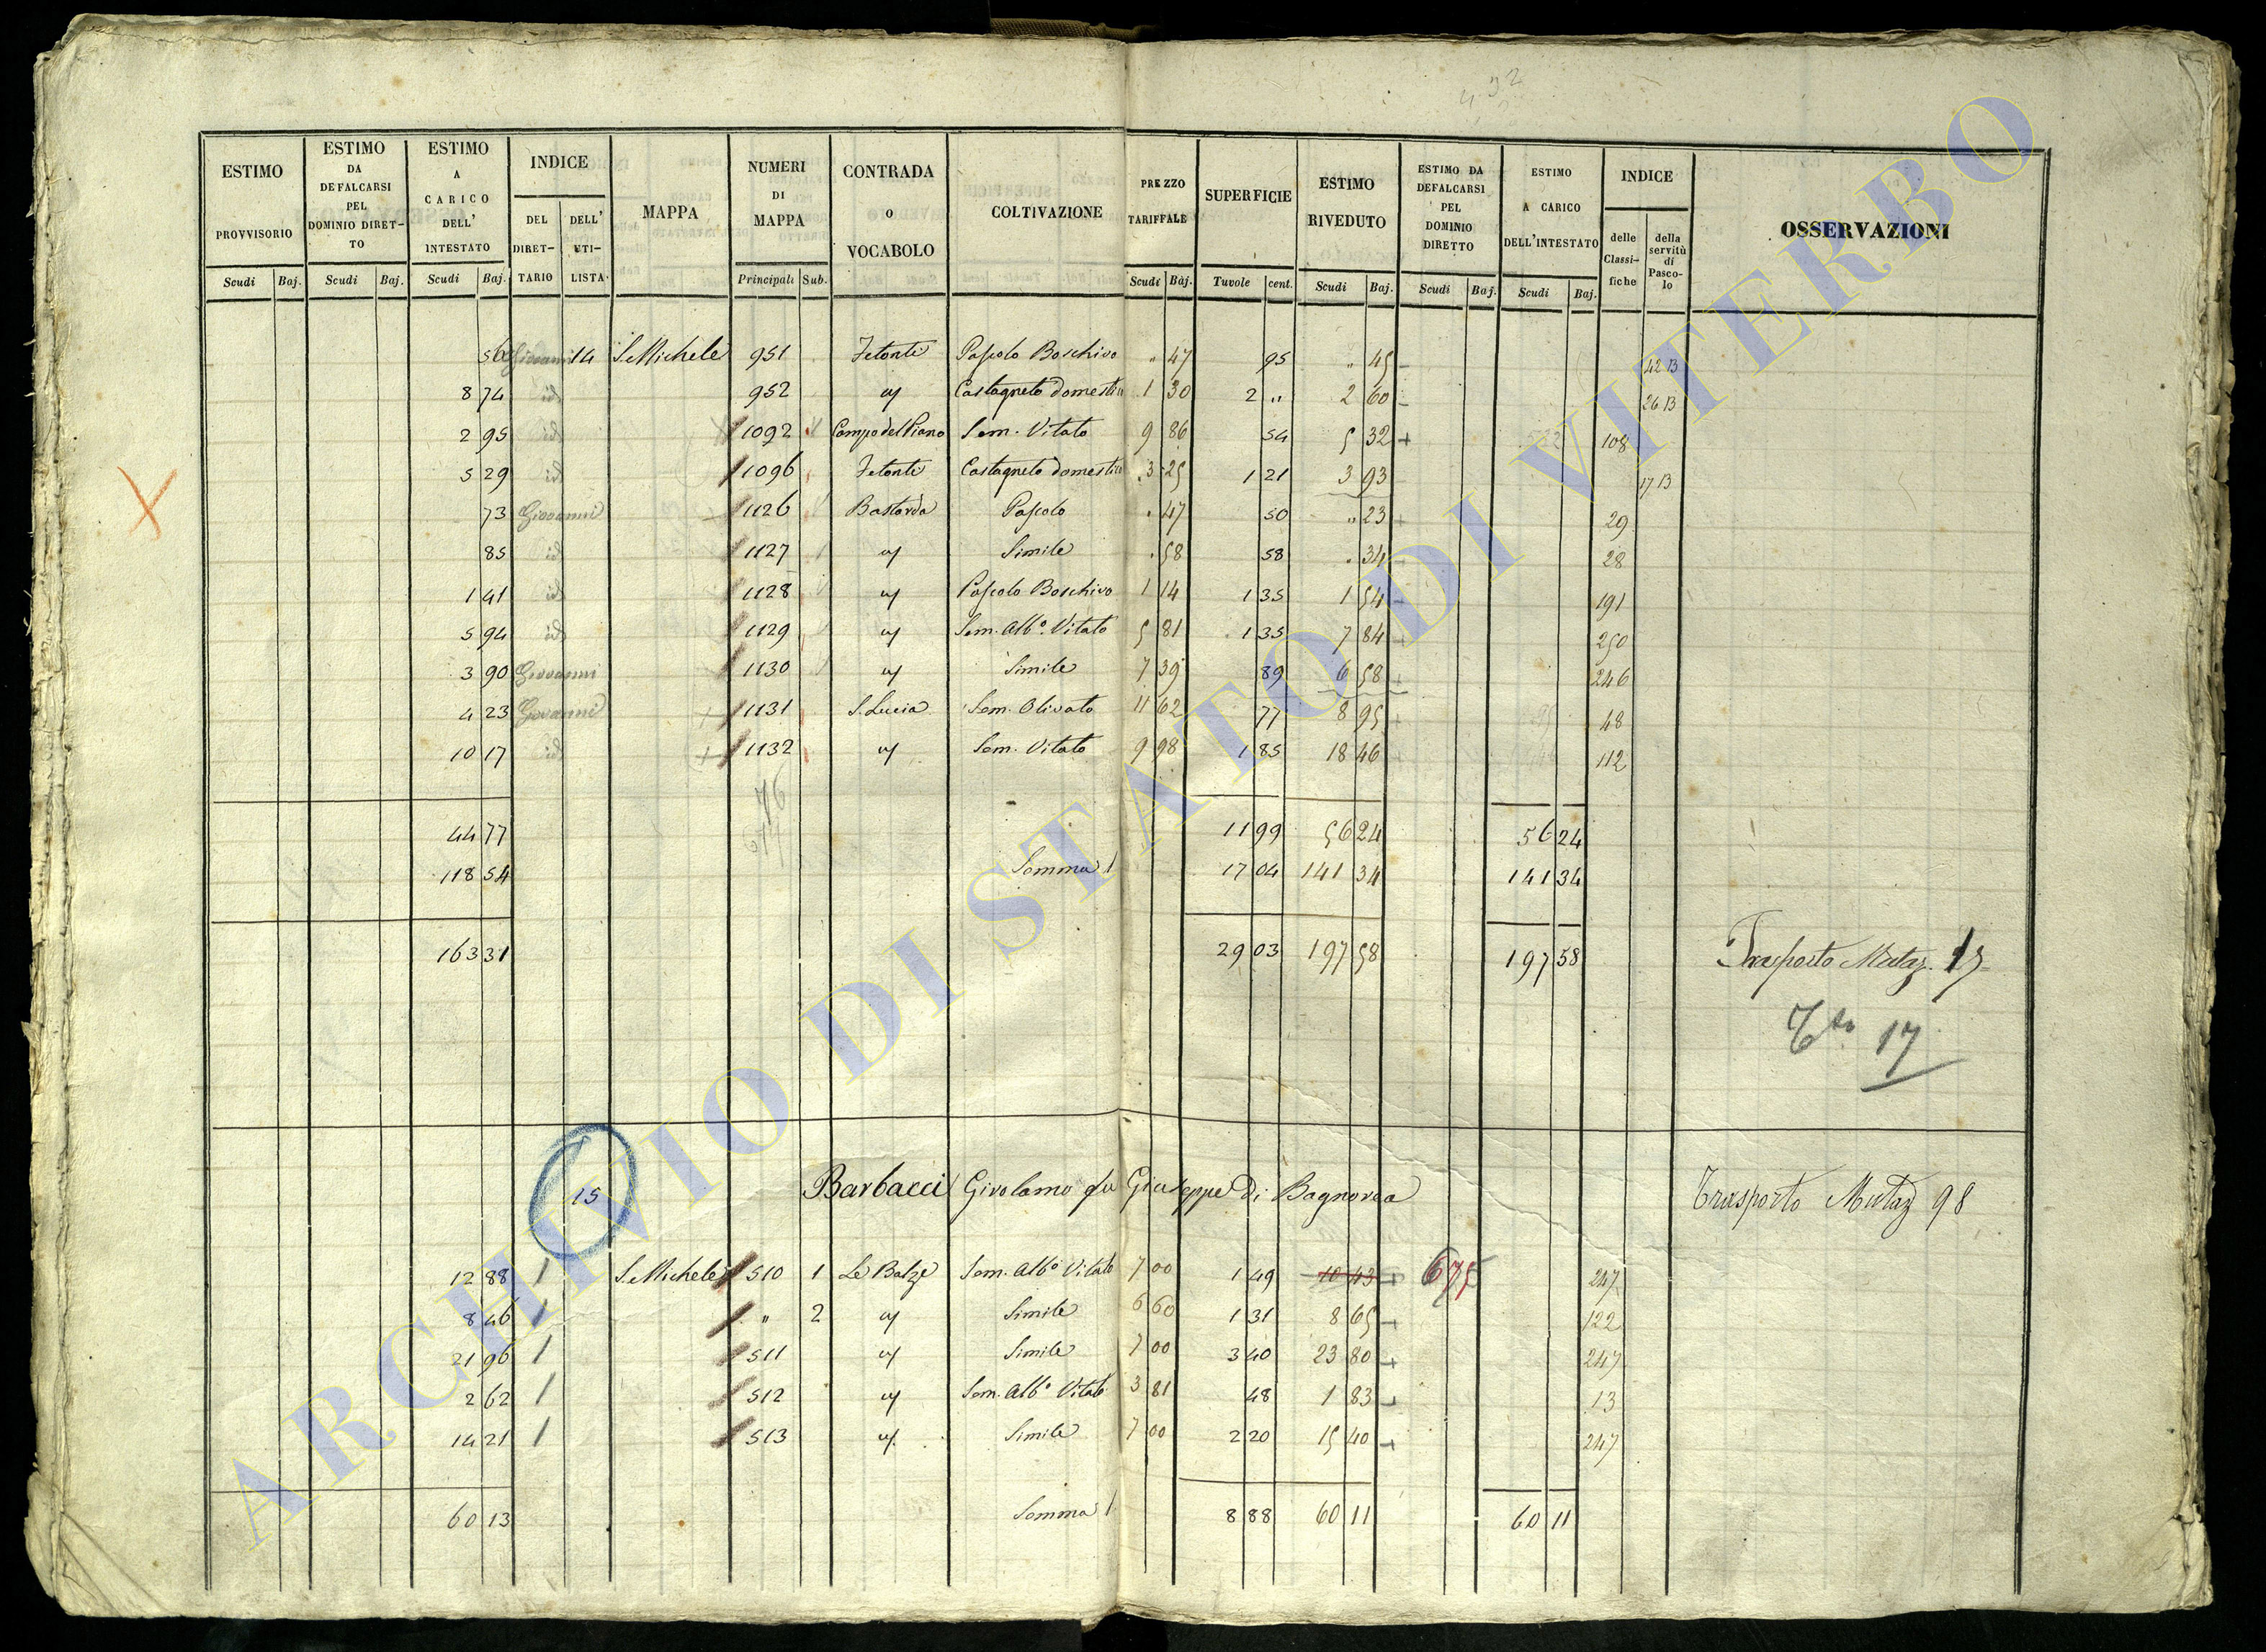 432
ESTIMO PROVVISORIO
ESTIMO DA DEFALCARSI PEL DOMINIO DIRETTO
ESTIMO A CARICO DELL' INTESTATO
INDICE
DEL DIRETTARIO
DELL' UTILISTA
MAPPA
NUMERI DI MAPPA
CONTRADA O VOCABOLO
COLTIVAZIONE
PREZZO TARIFFALE
SUPERFICIE
ESTIMO RIVEDUTO
ESTIMO DA DEFALCARSI PEL DOMINIO DIRETTO
ESTIMO A CARICO DELL'INTESTATO
INDICE
delle Classifiche
della servitù di Pascolo
OSSERVAZIONI
Scudi Baj. Scudi Baj. Scudi Baj. Principali Sub. Scudi Baj. Tavole cent. Scudi Baj. Scudi Baj. Scudi Baj.
56 Giovanni 14 S. Michele 951 Pascolo Boschivo " 47 95 " 45 42 B
8 74 id 952 " Castagneto domestico 1 30 2 " 2 60 26 B
2 95 id 1092 Campo del Piano Sem. Vitato 9 86 54 5 32 + 108
5 29 id 1096 Castagneto domestico 3 25 1 21 3 93 17 B
73 Giovanni 1126 Bastarda Pascolo . 47 50 " 23 + 29
85 id 1127 " Simile . 58 58 . 34 28
1 41 id 1128 " Pascolo Boschivo 1 14 1 35 1 54 191
5 94 id 1129 " Sem. Alb.º Vitato 5 81 1 35 7 84 250
3 90 Giovanni 1130 " Simile 7 39 89 6 58 246
4 23 Giovanni 1131 S. Lucia Sem. Olivato 11 62 77 8 95 48
10 17 id 1132 " Sem. Vitato 9 98 1 85 18 46 112
76
44 77 11 99 56 24 56 24
118 54 Somma 17 04 141 34 141 34
163 31 29 03 197 58 197 58 Trasporto Mutaz. 15
17
15 Barbacci Girolamo fu Giuseppe di Bagnorea Trasporto Mutaz 98
12 88 1 S. Michele 510 1 Le Balze Sem. Alb.º Vitato 7 00 1 49 10 43 + 675 247
8 46 1 " 2 " Simile 6 60 1 31 8 65 + 122
21 96 1 511 " Simile 7 00 3 40 23 80 + 247
2 62 1 512 " Sem. Alb.º Vitato 3 81 48 1 83 + 13
14 21 1 513 " Simile 7 00 2 20 15 40 + 247
60 13 Somma 8 88 60 11 60 11
ARCHIVIO DI STATO DI VITERBO